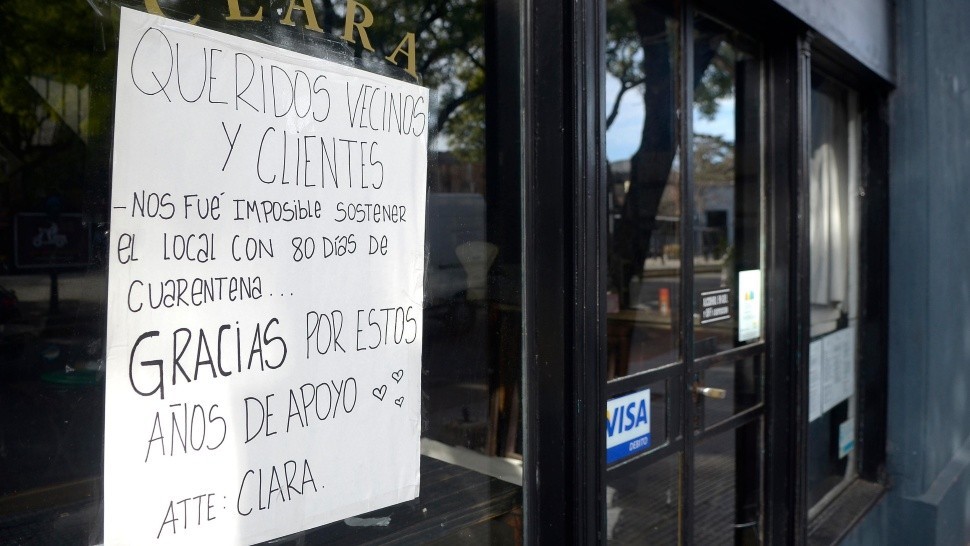 CLARA
QUERIDOS VECINOS
Y CLIENTES
- NOS FUÉ IMPOSIBLE SOSTENER
EL LOCAL CON 80 DÍAS DE
CUARENTENA...
GRACIAS POR ESTOS
AÑOS DE APOYO
ATTE: CLARA.
VISA
DEBITO